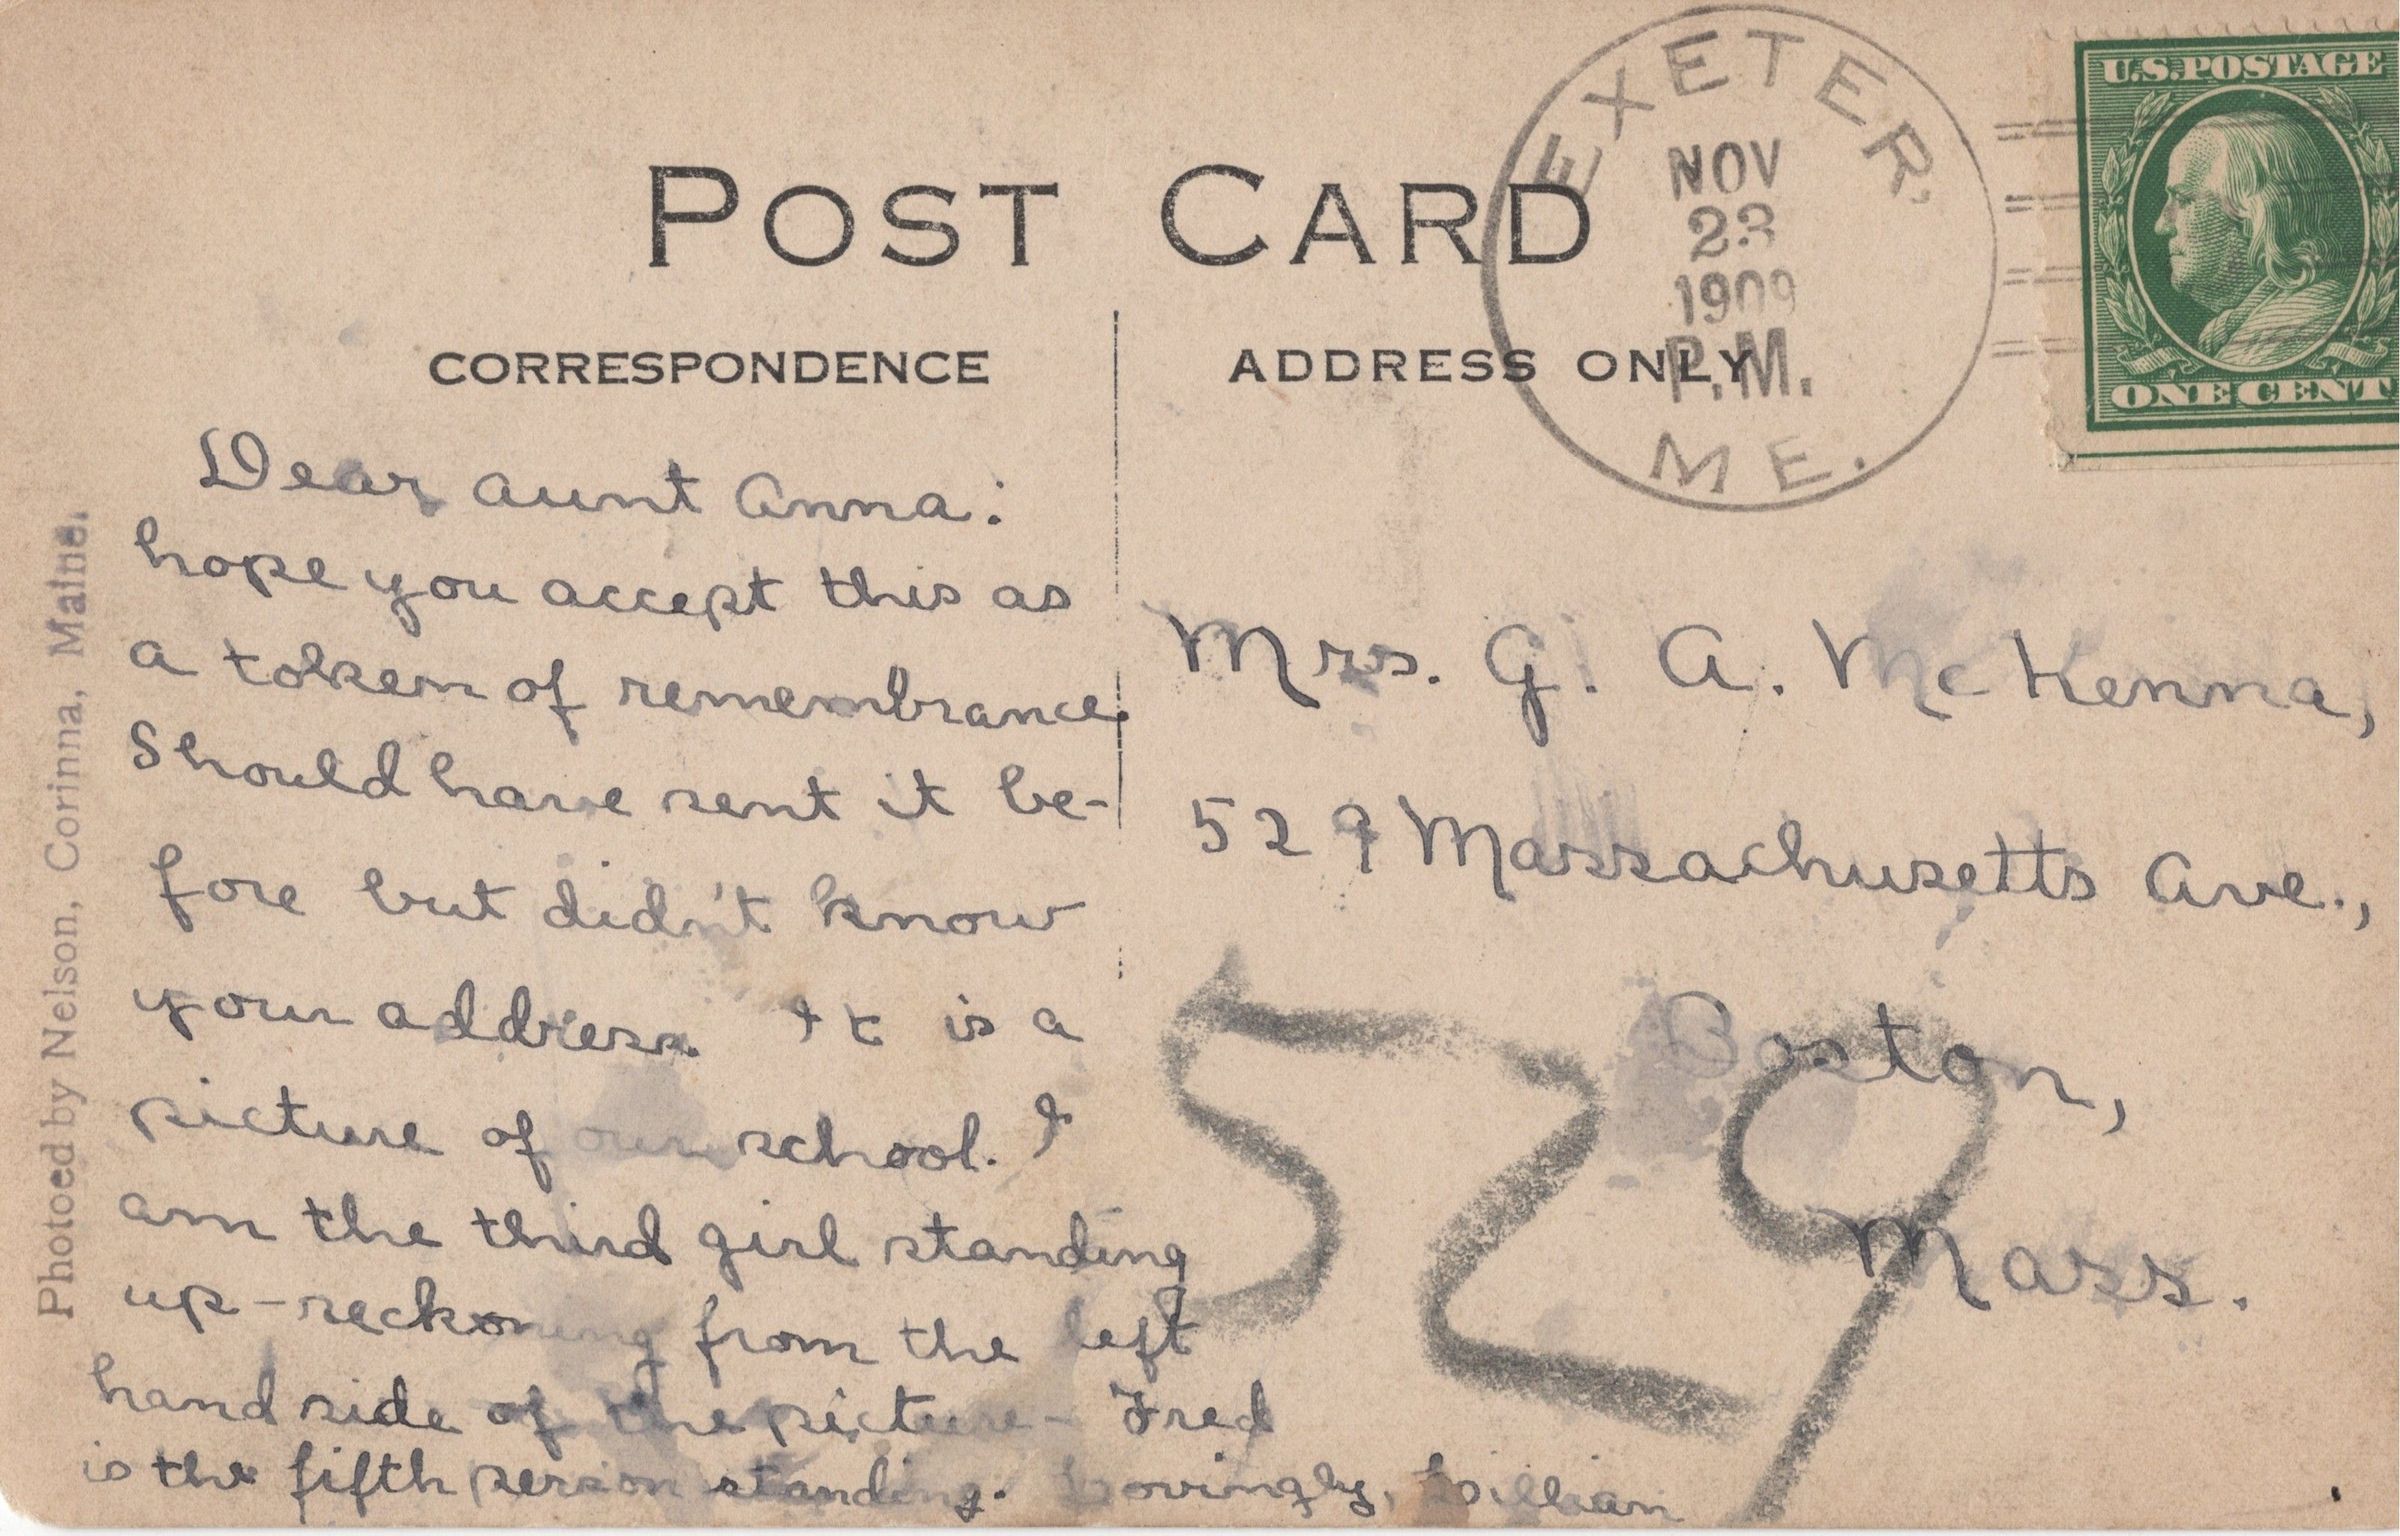 POST CARD
CORRESPONDENCE
ADDRESS ONLY
EXETER,
NOV
23
1909
P.M.
ME.
U.S. POSTAGE
ONE CENT
Photoed by Nelson, Corinna, Maine.
Dear Aunt Anna:
hope you accept this as
a token of remembrance.
Should have sent it be-
fore but didn't know
your address. It is a
picture of our school. I
am the third girl standing
up-reckoning from the left
hand side of the picture- Fred
is the fifth person standing. Lovingly, Lillian
Mrs. G. A. McKenna,
529 Massachusetts Ave.,
Boston,
Mass.
529